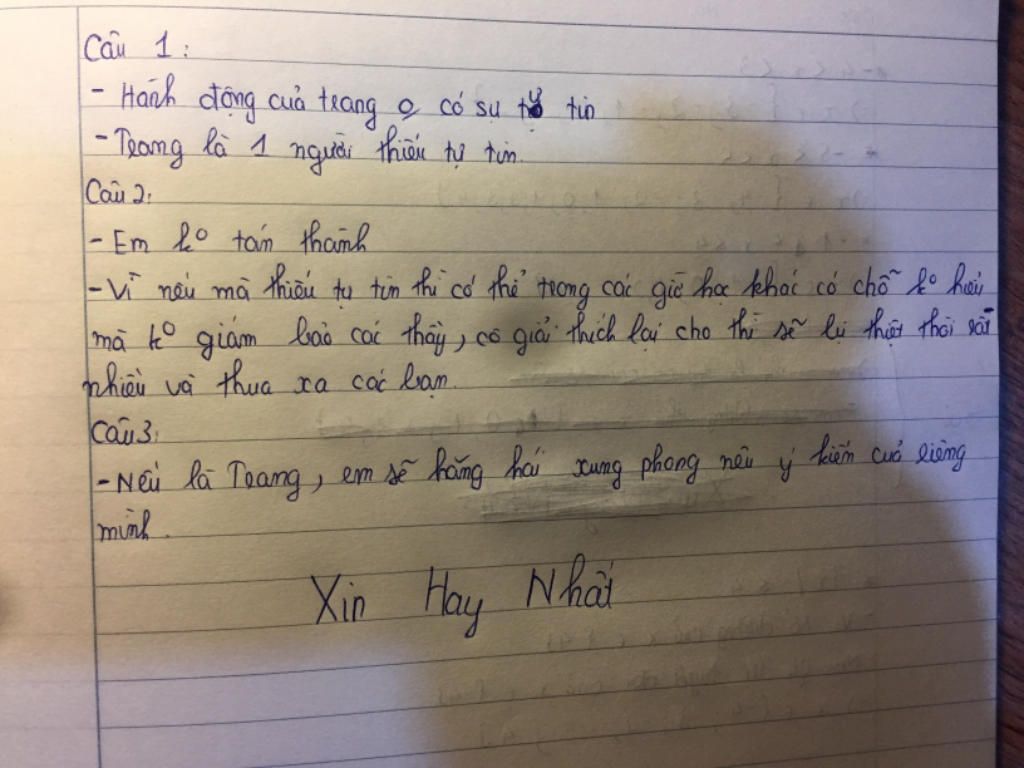 Câu 1:
- Hành động của trang o có sự tự tin
- Trang là 1 người thiếu tự tin.
Câu 2:
- Em ko tán thành
- Vì nếu mà thiếu tự tin thì có thể trong các giờ học khác có chỗ ko hiểu
mà ko giám bảo các thầy, cô giải thích lại cho thì sẽ bị thiệt thòi rất
nhiều và thua xa các bạn.
Câu 3:
- Nếu là Trang, em sẽ hăng hái xung phong nêu ý kiến của riêng
mình.
Xin Hay Nhất